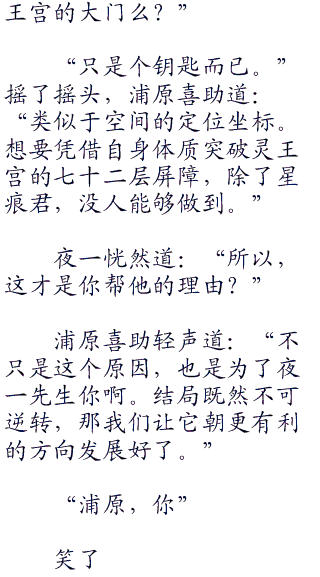 王宫的大门么？”
“只是个钥匙而已。”
摇了摇头，浦原喜助道：
“类似于空间的定位坐标。
想要凭借自身体质突破灵王
宫的七十二层屏障，除了星
痕君，没人能够做到。”
夜一恍然道：“所以，
这才是你帮他的理由？”
浦原喜助轻声道：“不
只是这个原因，也是为了夜
一先生你啊。结局既然不可
逆转，那我们让它朝更有利
的方向发展好了。”
“浦原，你”
笑了